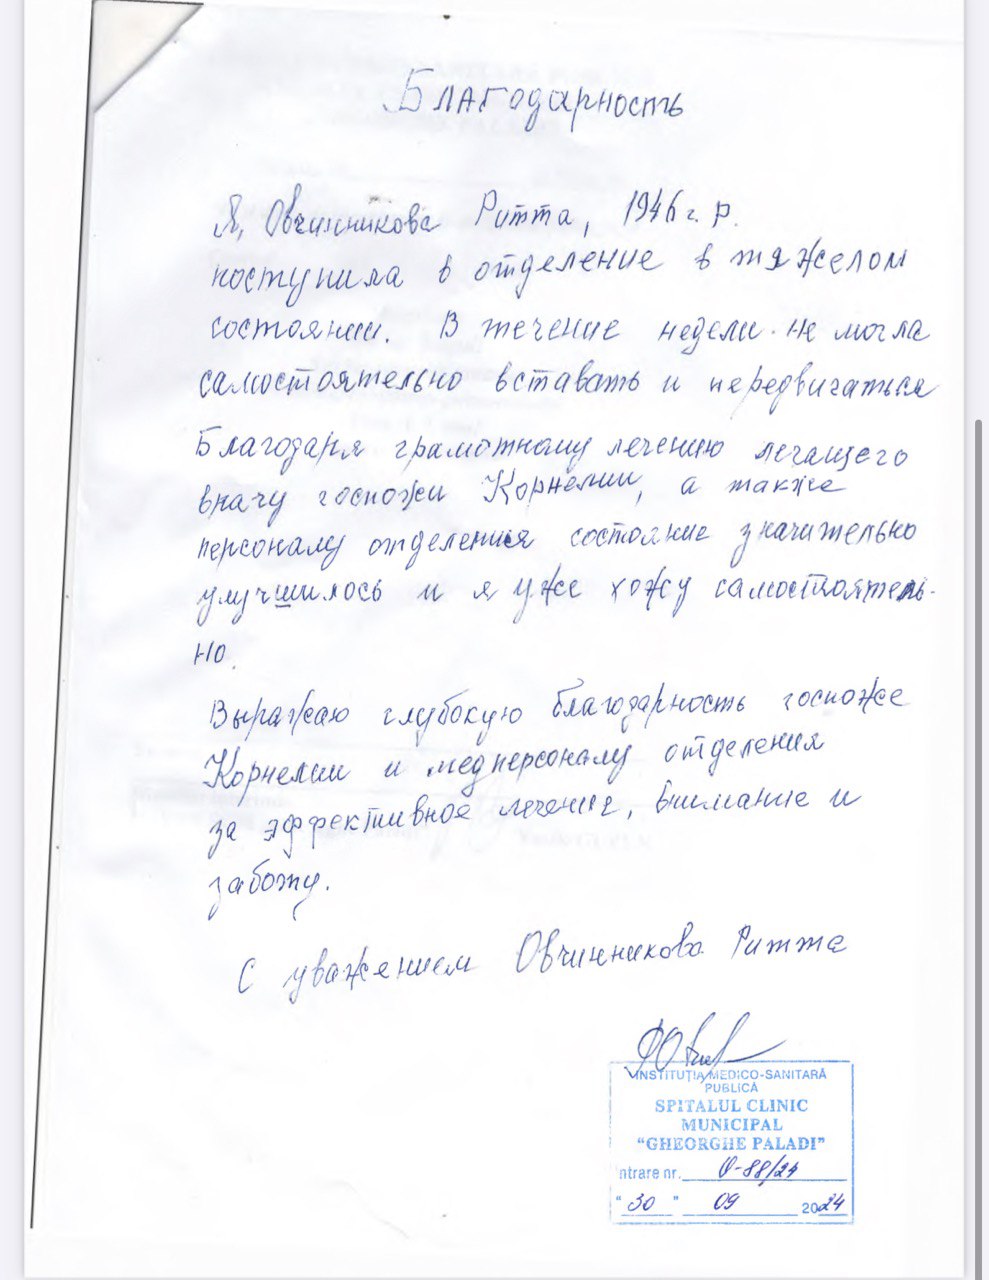 Благодарность
Я, Овчинникова Ритта, 1946 г. р.
поступила в отделение в тяжелом
состоянии. В течение недели не могла
самостоятельно вставать и передвигаться
Благодаря грамотному лечению лечащего
врачу госпожи Корнелии, а также
персоналу отделения состояние значительно
улучшилось и я уже хожу самостоятель-
но.
Выражаю глубокую благодарность госпоже
Корнелии и медперсоналу отделения
за эффективное лечение, внимание и
заботу.
С уважением Овчинникова Ритта
INSTITUȚIA MEDICO-SANITARĂ
PUBLICĂ
SPITALUL CLINIC
MUNICIPAL
"GHEORGHE PALADI"
ntrare nr. O-88/24
"30" 09 2024